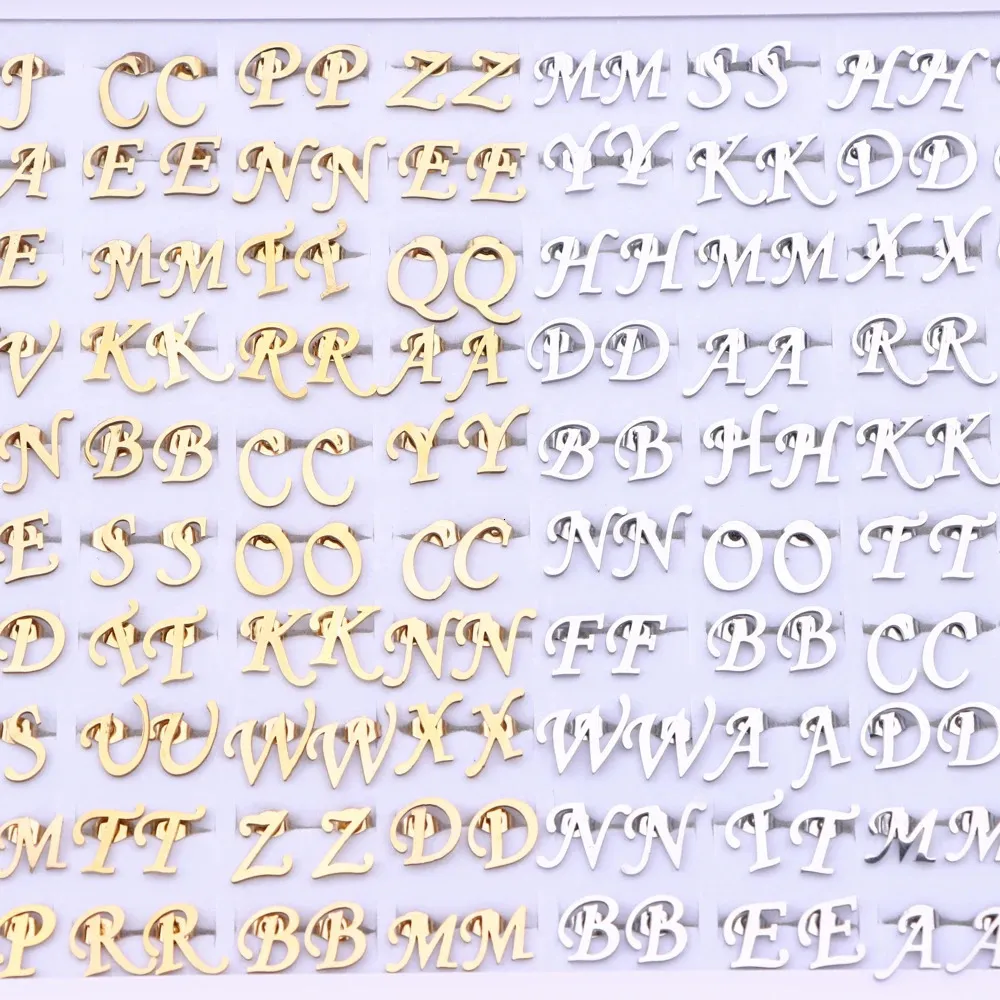 J CC PP ZZ MM SS HH
A EE NN EE YY KK DD
E MM TT QQ HH MM XX
V KK RR AA DD AA RR
N BB CC YY BB HH KK
E SS OO CC NN OO TT
D TT KK NN FF BB CC
S UU WW XX WW AA DD
M TT ZZ DD NN TT MM
P RR BB MM BB EE AA